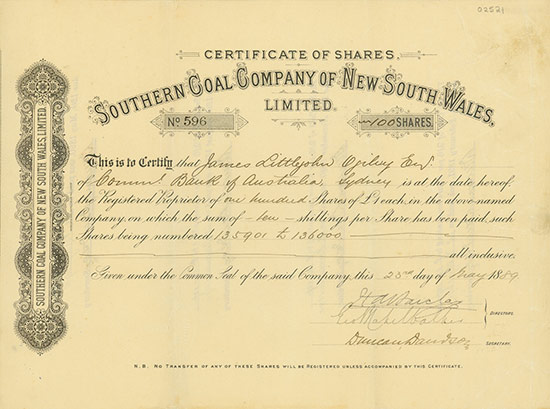 02521
CERTIFICATE OF SHARES.
SOUTHERN COAL COMPANY OF NEW SOUTH WALES,
LIMITED.
No 596
100 SHARES.
SOUTHERN COAL COMPANY OF NEW SOUTH WALES, LIMITED.
This is to Certify that James Littlejohn Ogilvy Esq.
of Comml. Bank of Australia, Sydney is at the date hereof
the Registered Proprietor of one hundred Shares of £1 each, in the above-named
Company, on which the sum of - ten - shillings per Share has been paid, such
Shares being numbered 135901 to 136000.
all inclusive.
Given under the Common Seal of the said Company, this 23rd day of May 1889
DIRECTORS.
Duncan
SECRETARY.
N.B. NO TRANSFER OF ANY OF THESE SHARES WILL BE REGISTERED UNLESS ACCOMPANIED BY THIS CERTIFICATE.